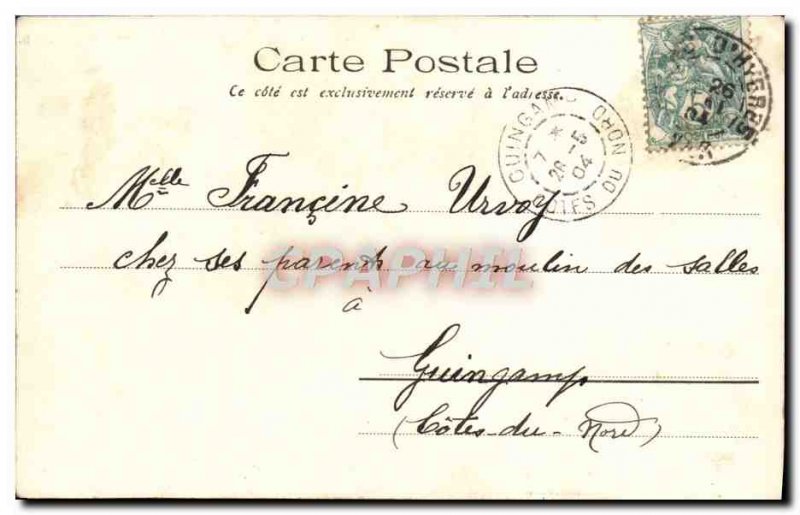 Carte Postale
Ce côté est exclusivement réservé à l'adresse.
GUINGAMP
CÔTES DU NORD
7 * 
28 -1 04
D'HYÈRES
26
Melle Françine Urvoy
chez ses parents au moulin des salles
à
Guingamp
(Côtes-du-Nord)
CPAPHIL